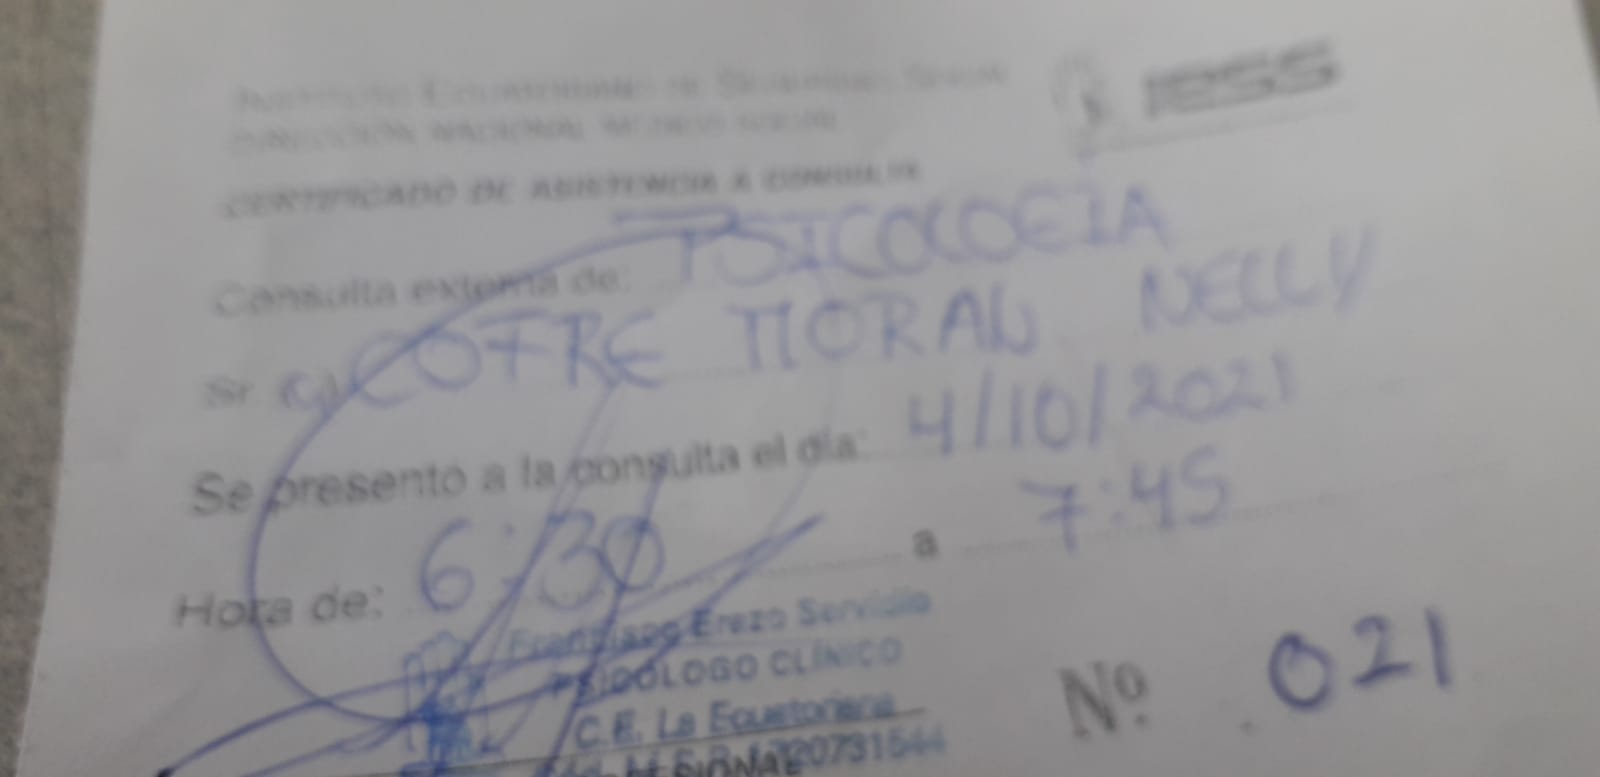 INSTITUTO ECUATORIANO DE SEGURIDAD SOCIAL
DIRECCIÓN NACIONAL MÉDICO SOCIAL
IESS
CERTIFICADO DE ASISTENCIA A CONSULTA
Consulta externa de: PSICOLOGIA
Sr. (a) COFRE MORAL NELLY
Se presento a la consulta el día: 4/10/2021
Hora de: 6:30 a 7:45
Erazo Servidio
PSICÓLOGO CLÍNICO
C.E. La Ecuatoriana
Nº 021